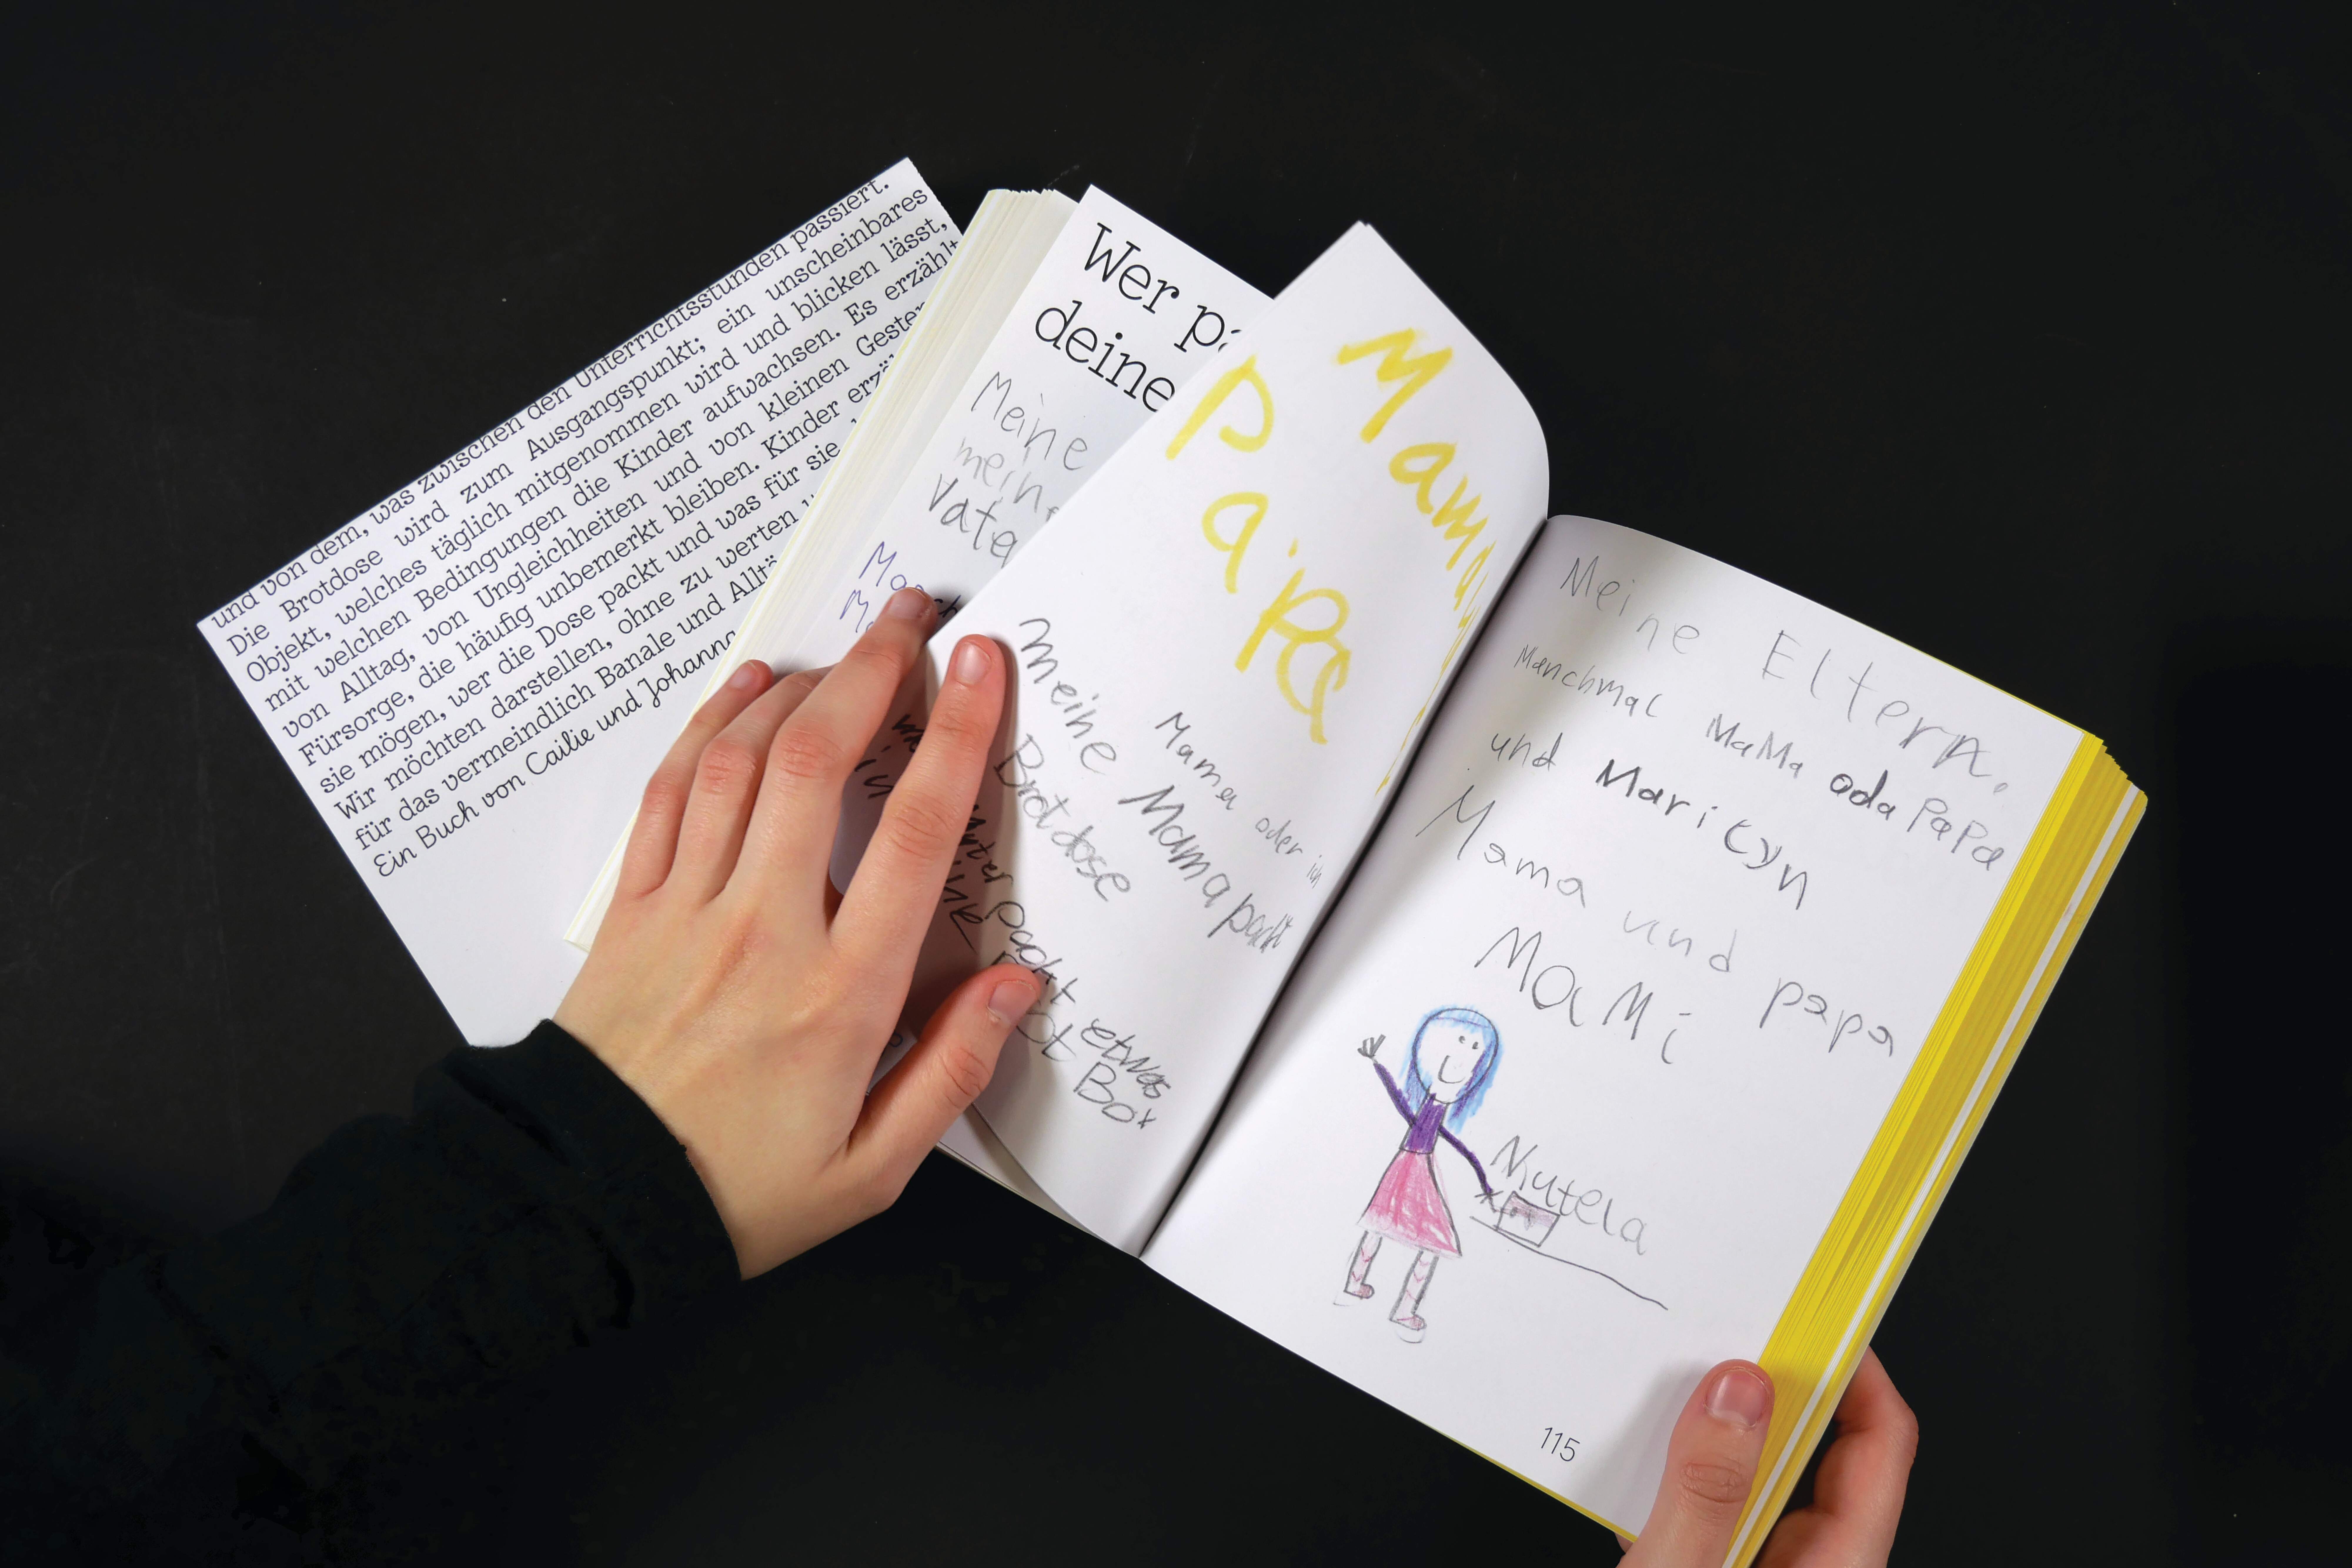 und von dem, was zwischen den Unterrichtsstunden passiert.
Die Brotdose wird zum Ausgangspunkt; ein unscheinbares
Objekt, welches täglich mitgenommen wird und blicken lässt,
mit welchen Bedingungen die Kinder aufwachsen. Es erzählt
von Alltag, von Ungleichheiten und von kleinen Gesten
Fürsorge, die häufig unbemerkt bleiben. Kinder
sie mögen, wer die Dose packt und was für sie
Wir möchten darstellen, ohne zu werten
für das vermeindlich Banale und
Ein Buch von Cailie und Johanna
Wer
deine
Meine
mein
Mama
Papa
Mama oder ich
Meine Mama packt
Brotdose
packt etwas
Box
Meine Eltern.
Manchmal MaMa oda PaPa
und Marilyn
Mama und papa
MaMi
Nutela
115